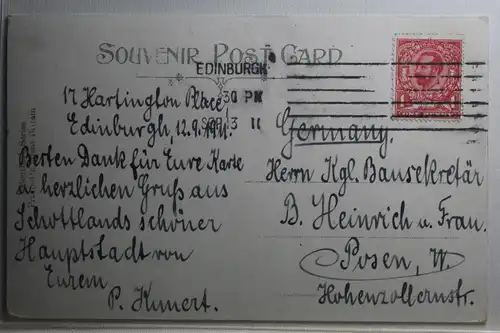 SOUVENIR POST CARD
EDINBURGH
30 PM
SEP 3 11
17 Hartington Place
Edinburgh, 12.9.1911.
Besten Dank für Eure Karte
u. herzlichen Gruß aus
Schottlands schöner
Hauptstadt von
Eurem
P. Kunert.
Germany.
Herrn Kgl. Bausekretär
B. Heinrich u. Frau.
Posen, W.
Hohenzollernstr.